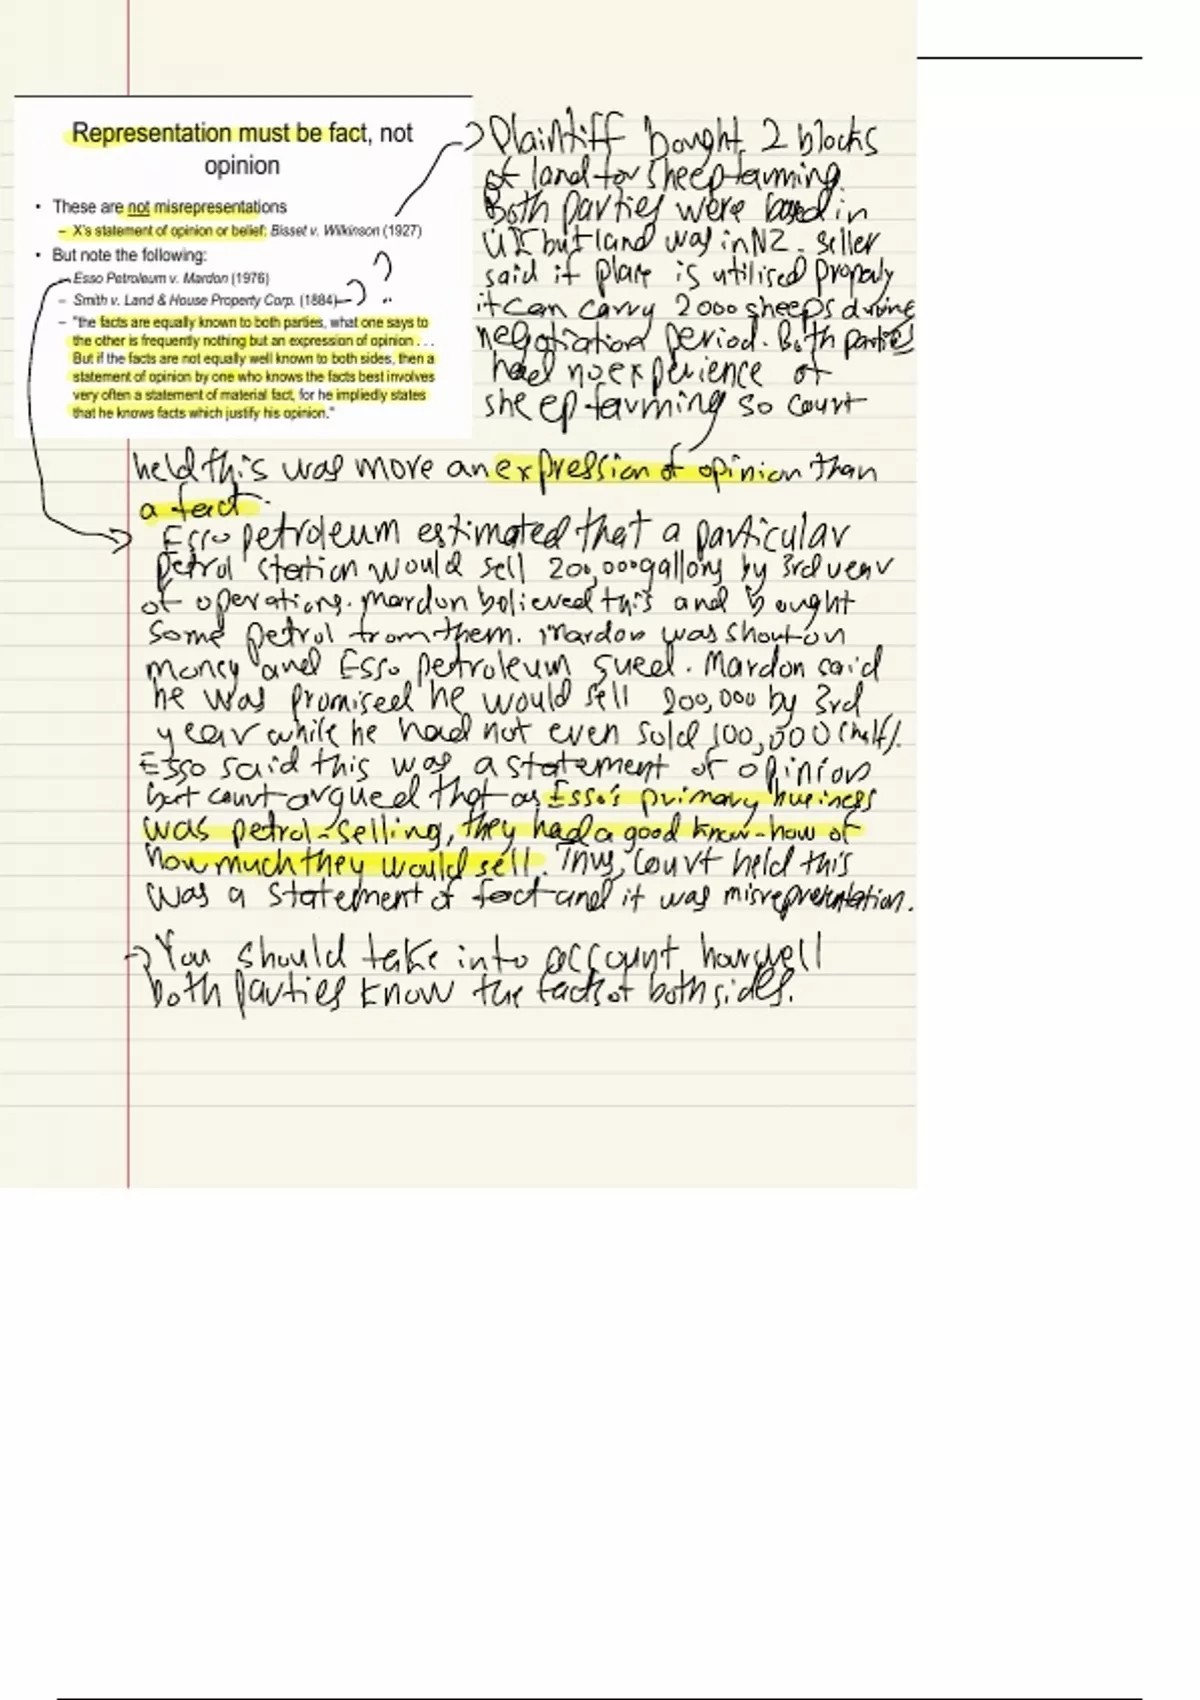 Representation must be fact, not
opinion
• These are not misrepresentations
– X's statement of opinion or belief: Bisset v. Wilkinson (1927)
• But note the following:
Esso Petroleum v. Mardon (1976)
– Smith v. Land & House Property Corp. (1884)
?
– "the facts are equally known to both parties, what one says to
the other is frequently nothing but an expression of opinion . . .
But if the facts are not equally well known to both sides, then a
statement of opinion by one who knows the facts best involves
very often a statement of material fact, for he impliedly states
that he knows facts which justify his opinion."
Plaintiff bought 2 blocks
of land for sheep farming.
Both parties were based in
UK but land was in NZ. seller
said if place is utilised properly
it can carry 2000 sheeps during
negotiation period. Both parties
had no experience of
sheep farming so court
held this was more an expression of opinion than
a fact.
Esso petroleum estimated that a particular
petrol station would sell 200,000 gallons by 3rd year
of operations. Mardon believed this and bought
some petrol from them. Mardon was short on
money and Esso petroleum sued. Mardon said
he was promised he would sell 200,000 by 3rd
year while he had not even sold 100,000 (half).
Esso said this was a statement of opinion
but court argued that as Esso's primary business
was petrol-selling, they had a good know-how of
how much they would sell. Thus, court held this
was a statement of fact and it was misrepresentation.
→ You should take into account how well
both parties know the facts of both sides.